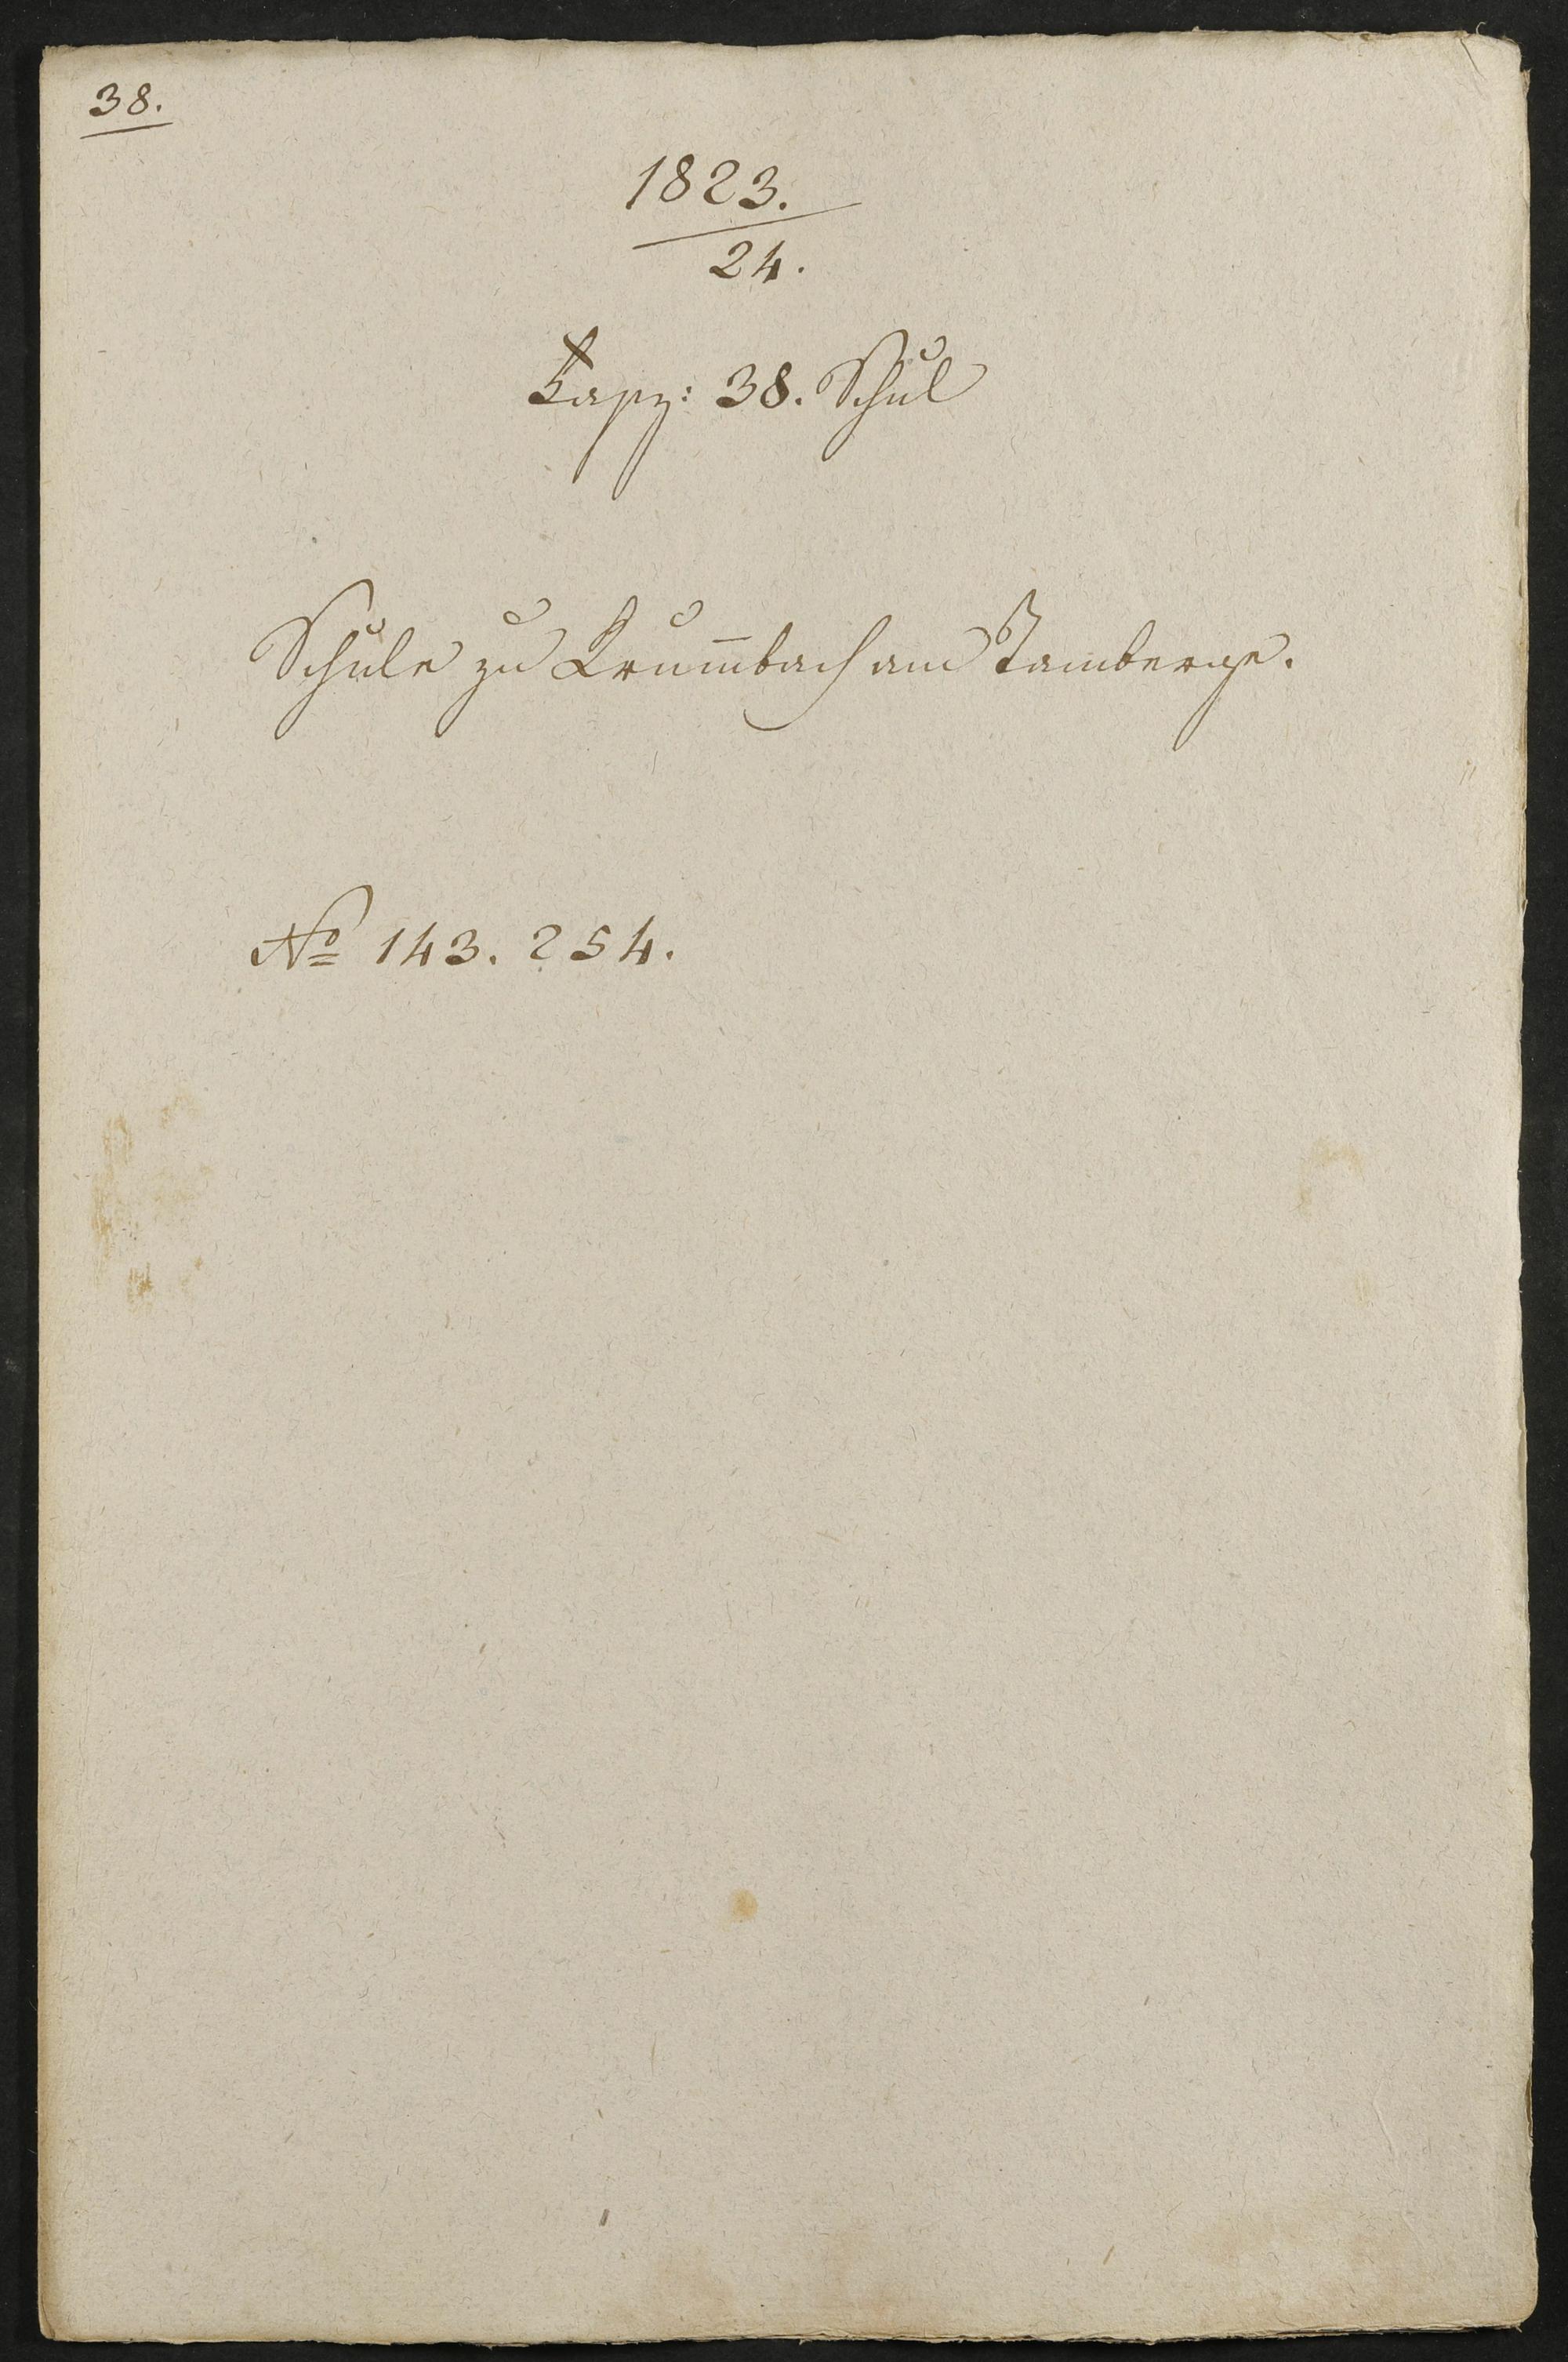 38.
1823.
24.
Fasz: 38. Schul
Schule zu Krum̅bach am Tamberge.
No 143. 254.